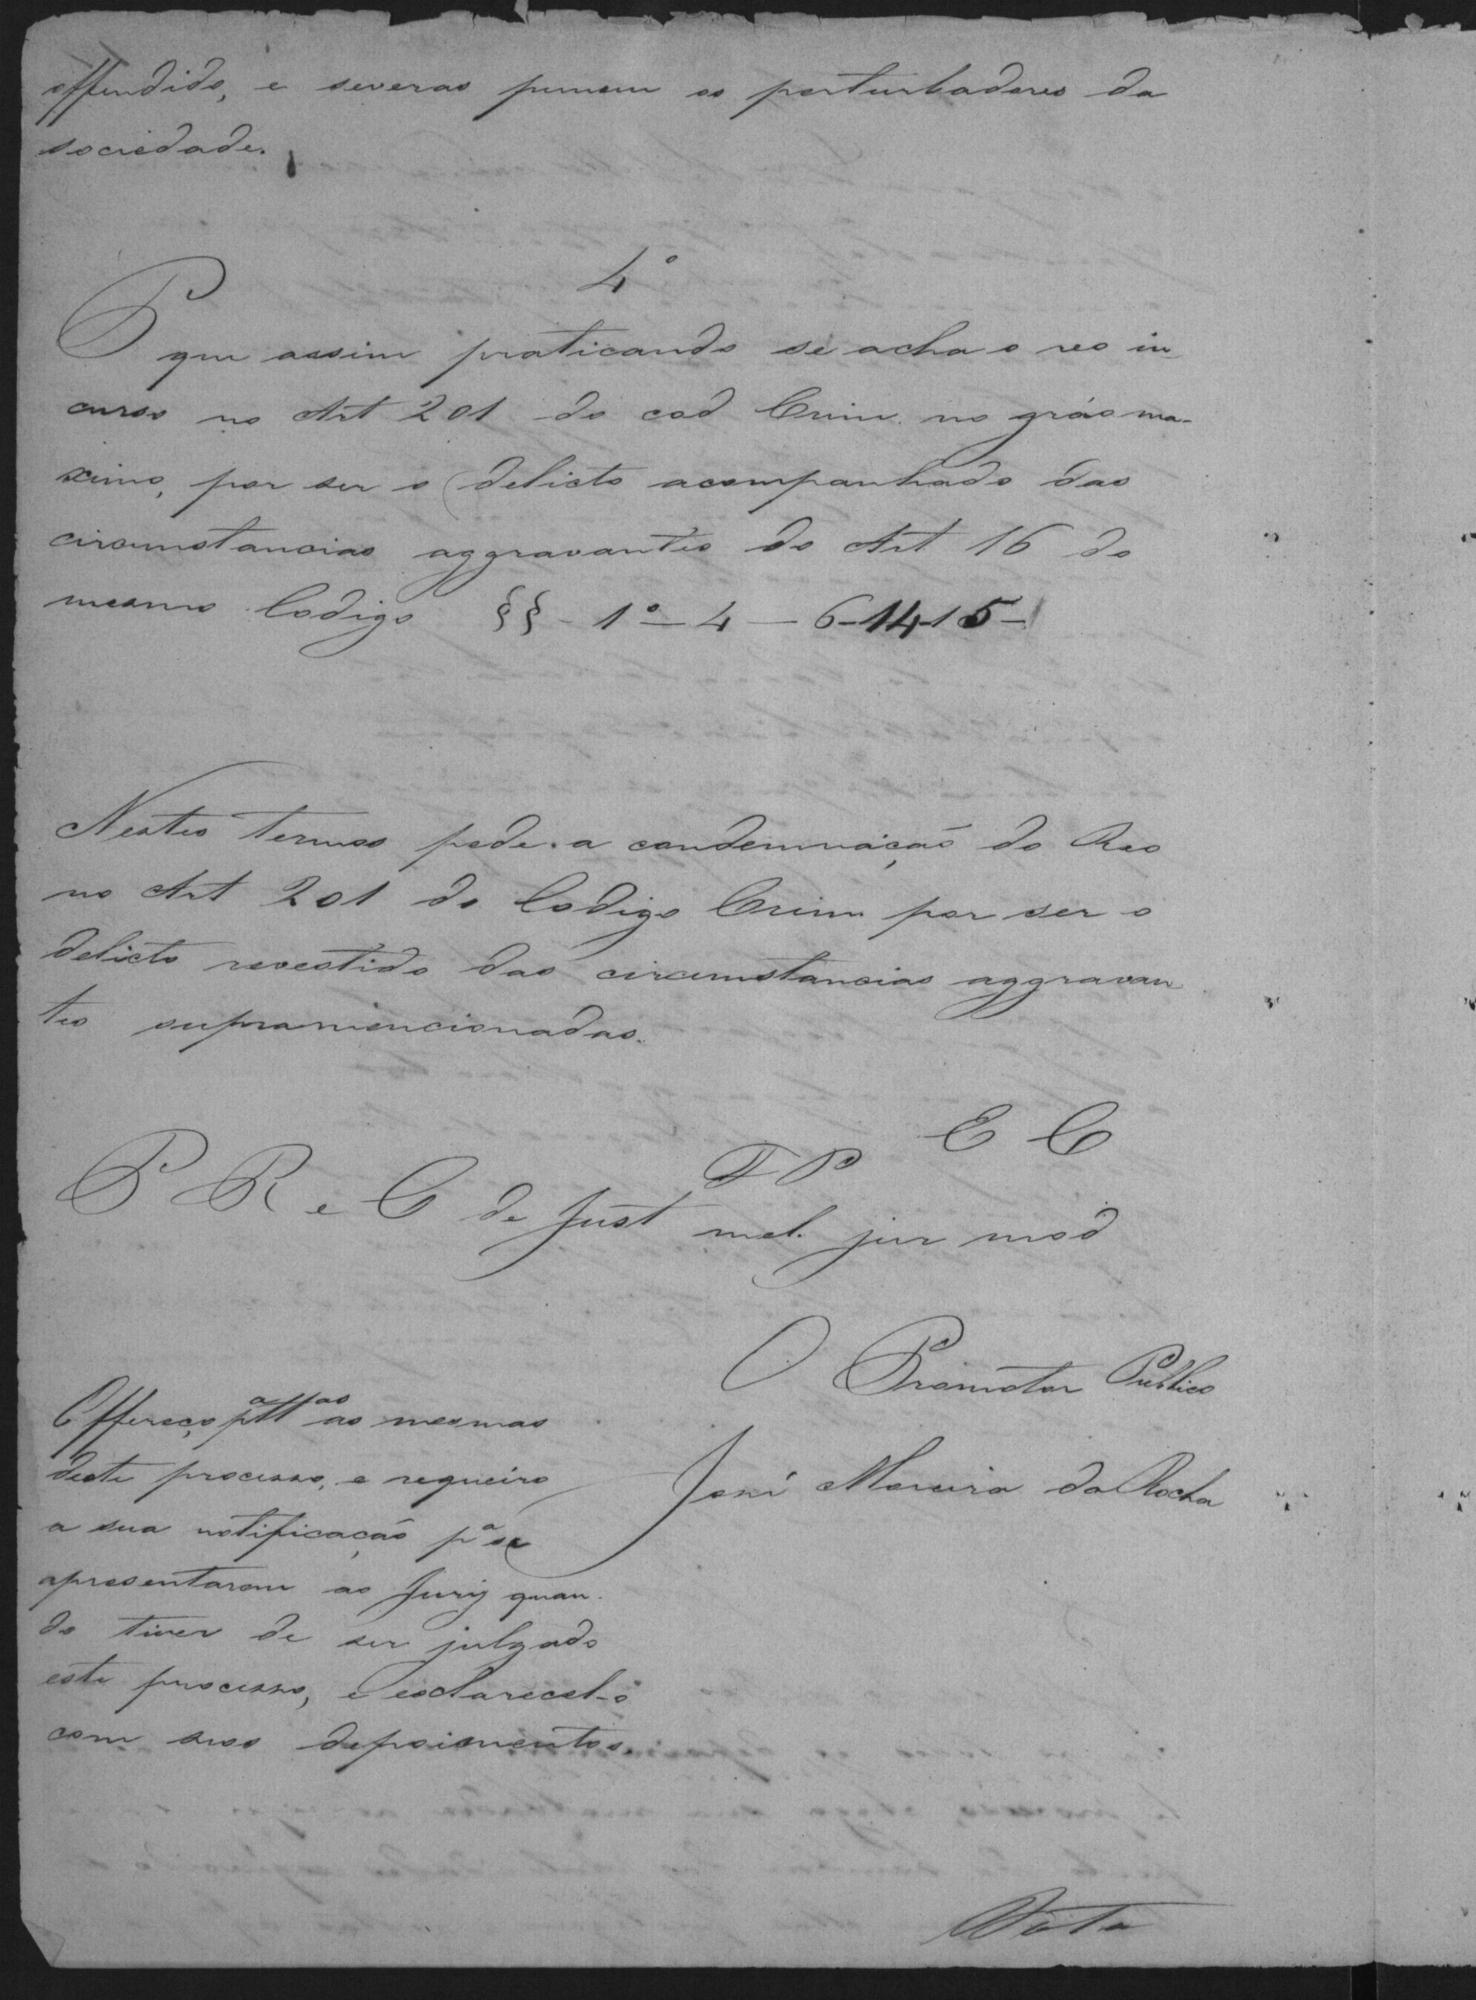 offendido, e severas punem os perturbadores da
sociedade.
4º
P que assim praticando se acha o reo in
curso no Art 201 do cod Crim. no gráo ma-
ximo, por ser o delicto acompanhado das
circumstancias aggravantes do Art 16 do
mesmo Codigo §§ - 1º - 4 - 6-14-15-
Nestes termos pede. a condemnação do Reo
no Art 201 do Codigo Crim por ser o
delicto revestido das circumstancias aggravan
tes supramencionadas.
E C
F P
P R e C de Just mel. jur mod
O Promotor Publico
José Moreira da Rocha
Offereço pª ttªˢ as mesmas
deste processo, e requeiro
a sua notificação pª se
apresentarem ao Jury quan-
do tiver de ser julgado
este processo, e esclarecel-o
com seos depoimentos.
Vista